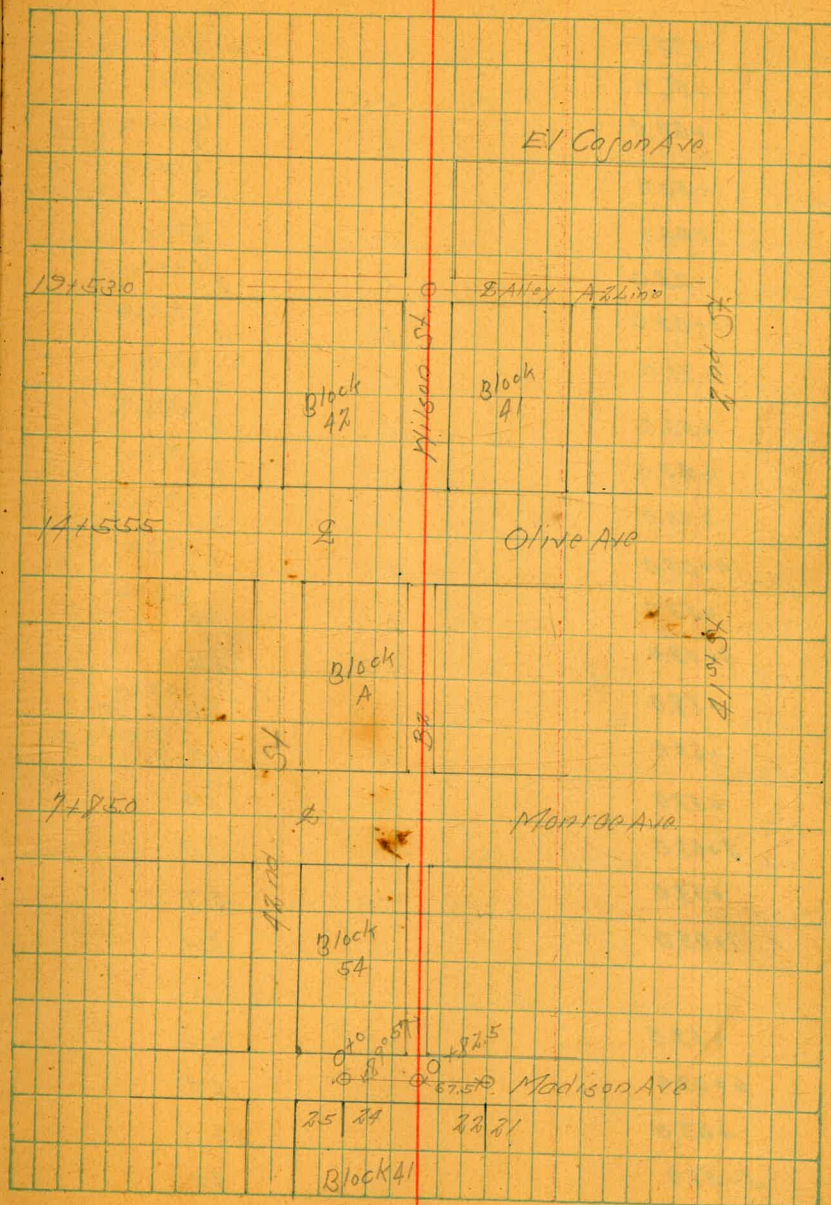 El Cajon Ave
19+53.0
℄ Alley A2 Line
2nd St
Wilson St.
Block
42
Block
41
14+55.5
℄
Olive Ave
Block
A
41st St
St.
7+85.0
℄
Monroe Ave
42nd
Block
54
0+0
89°57'
0+82.5
67.5
Madison Ave
25 24 22 21
Block 41